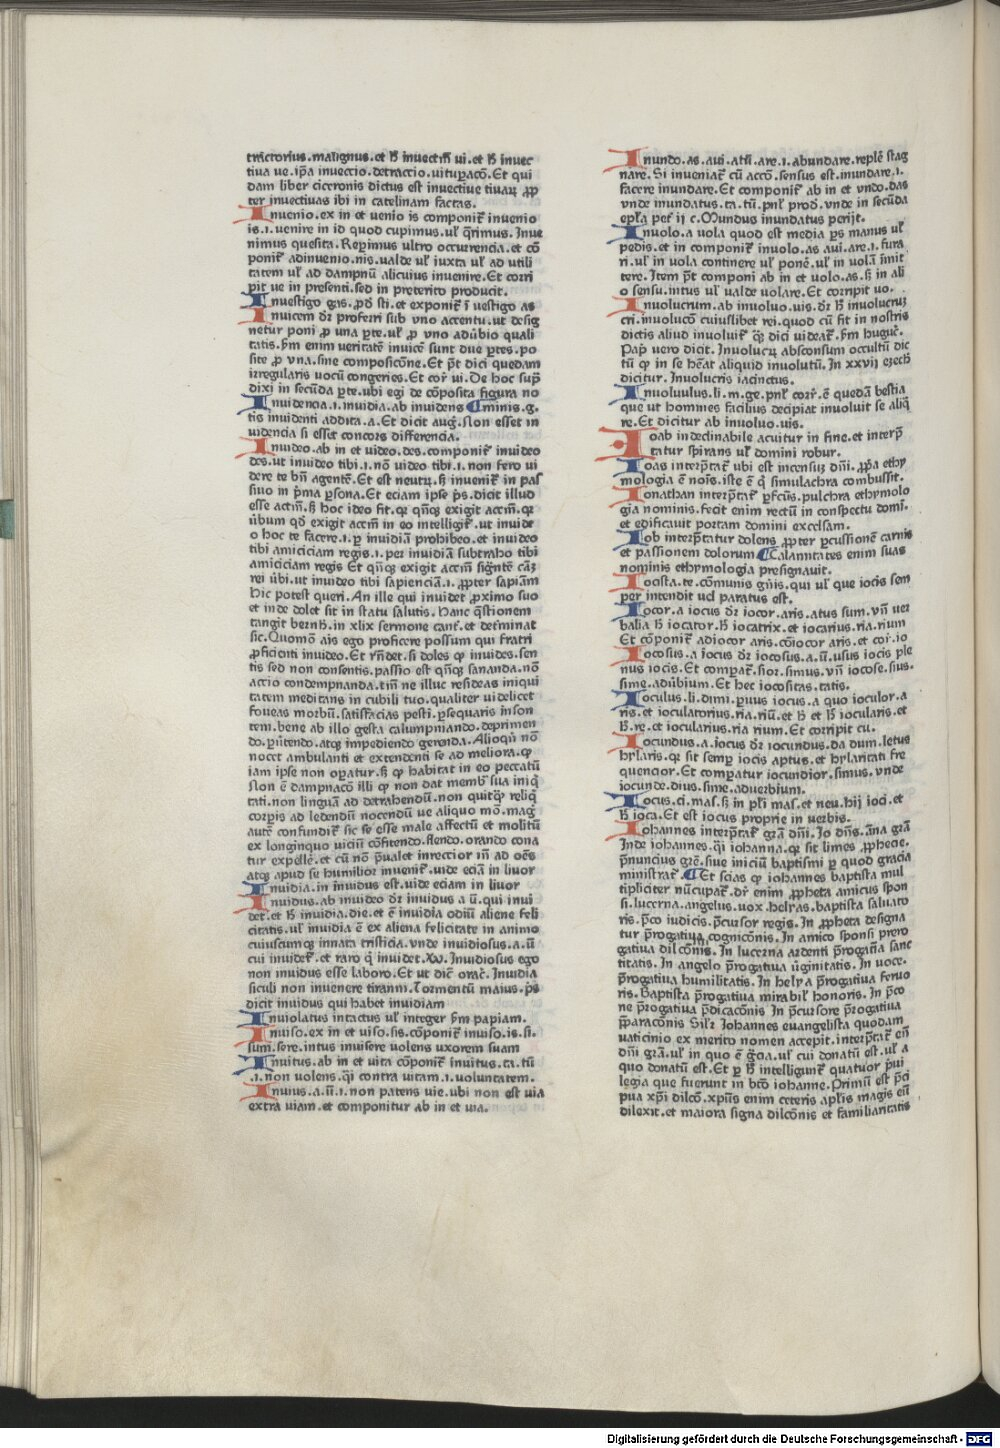 tractorius.malignus.et h̄ inuectiū ui.et h̄ inuec
tiua ue.ip̄a inuectio.detractio.uitupaco̅.Et qui
dam liber ciceronis dictus est inuectiue tiuaꝝ ꝓp
ter inuectiuas ibi in catelinam factas.
Inuenio.ex in et uenio is componit̛ inuenio
is.i.uenire in id quod cupimus.ul̛ q̄rimus.Inue
nimus quesita.Reperimus ultro occurrencia.et co̅
ponit̛ adinuenio.nis.ualde ul̛ iuxta ul̛ ad utili
tatem ul̛ ad dampnū alicuius inuenire.Et corri
pit ue in presenti.sed in preterito producit.
Inuestigo gas.ꝓd̄ sti.et exponit̛ ī uestigo as
Inuicem dr̄ proferri sub uno accentu.ut desig
netur poni ꝓ una ꝑte.ul̛ ꝓ uno adūbio quali
tatis.ẜm enim ueritatē inuicē sunt due ꝑtes.po
site ꝓ una.sine composicōne.Et p̄t dici quedam
irregularis uocū congeries.Et cor̛ ui.De hoc sup̄
dixi in secūda ꝑte.ubi egi de cōposita figura no
Inuidencia.i.inuidia.ab inuidens ¶minis.q.
tis inuidenti addita.a.Et dicit aug̛.Non esset in
uidencia si esset concors differencia.
Inuideo.ab in et uideo.des.componit̛ inuideo
des.ut inuideo tibi.i.nō uideo tibi.i.non fero ui
dere te bn̄ agentē.Et est neutꝝ.ẜ inuenit̛ in pas
siuo in p̄ma ꝑsona.Et eciam ipse p̄s.dicit illud
esse actiū.ẜ hoc ideo fit.qꝫ qn̄qꝫ exigit accm̄.qꝫ
ūbum qd̄ exigit accm̄ in eo intelligit̛.ut inuide
o hoc te facere.i.ꝑ inuidiā prohibeo.et inuideo
tibi amiciciam regis.i.per inuidiā subtraho tibi
amiciciam regis Et qn̄qꝫ exigit accm̄ signt̄e cāꝫ
rei ūbi.ut inuideo tibi sapienciā.i.ꝓpter sapiām
Hic potest queri.An ille qui inuidet ꝓximo suo
et inde dolet sit in statu salutis.Hanc q̄stionem
tangit bernh̄.in xlix sermone cant̛.et det̛minat
sic.Quomō ais ego proficere possum qui fratri
ꝓficienti inuideo.Et rn̄det.si doles qꝫ inuides.sen
tis sed non consentis.passio est qn̄qꝫ sananda.nō
accio condempnanda.tn̄ ne illuc resideas iniqui
tatem meditans in cubili tuo.qualiter uidelicet
foueas morbū.satisfacias pesti.ꝑsequaris inson
tem.bene ab illo gesta calumpniando.deprimen
do.ꝑūtendo.atqꝫ impediendo gerenda.Alioqū nō
nocet ambulanti et extendenti se ad meliora.qꝫ
iam ipse non oꝑatur.ẜ qꝫ habitat in eo peccatū
Non ē dampnacō illi qꝫ non dat memb̛ sua iniq̄
tati.non linguā ad detrahendū.non quitqꝫ reliq̄
corꝑis ad ledendū nocendū ue aliquo mō.mag̛
autē confundit̛ sic se esse male affectū et molitū
ex longinquo uiciū cōfitendo.flendo.orando cona
tur expellē.et cū nō p̄ualet inreccior in̄ ad oēs
atqꝫ apud se humilior inuenit̛.uide eciā in liuor
Inuidia.in inuidus est.uide eciam in liuor
Inuidus.ab inuideo dr̄ inuidus a ū.qui inui
det.et h̄ inuidia.die.et ē inuidia odiū aliene feli
citatis.ul̛ inuidia ē ex aliena felicitate in animo
cuiuscumqꝫ innata tristicia.unde inuidiosus.a.ū
cui inuidet̛.et raro q̄ inuidet.xv.Inuidiosus ego
non inuidus esse laboro.Et ut dicē orac̛.Inuidia
siculi non inuenere tiranni.Tormentū maius.p̄s
dicit inuidus qui habet inuidiam
Inuiolatus intactus ul̛ integer ẜm papiam.
Inuiso.ex in et uiso.sis.cōponit̛ inuiso.is.si.
sum.sere.intus inuisere uolens uxorem suam
Inuitus.ab in et uita cōponit̛ inuitus.ta.tū
.i.non uolens.q̄i contra uitam.i.uoluntatem.
Inuius.a.ū.i.non patens uie.ubi non est uia
extra uiam.et componitur ab in et uia.
Inundo.as.aui.atū.are.i.abundare.replē stag
nare.Si inueniat̛ cū accō.sensus est.inundare.i.
facere inundare.Et componit̛ ab in et undo.das
unde inundatus.ta.tū.pnl̛ prod̛.unde in secūda
epl̄a pet̛ ij c.Mundus inundatus perijt.
Inuolo.a uola quod est media ꝑs manus ul̛
pedis.et in componit̛ inuolo.as aui.are.i.fura
ri.ul̛ in uola continere ul̛ ponē.ul̛ in uolā īmit
tere.Item p̄t componi ab in et uolo.as.ẜ in ali
o sensu.intus ul̛ ualde uolare.Et corripit uo.
Inuolucrum.ab inuoluo.uis.dr̄ h̄ inuolucruꝫ
cri.inuolucō cuiuslibet rei.quod cū fit in nostris
dictis aliud inuoluit̛ qꝫ dici uideat̛.ẜm huguē.
Pap̄ uero dicit.Inuolucꝝ absconsum occultū dic
tū qꝫ in se hēat aliquid inuolutū.In xxvij ezech̄
dicitur.Inuolucris iacinctus.
Inuoluulus.li.m.ge.pnl̛ cor̛.ē quedā bestia
que ut hommes facilius decipiat inuoluit se aliq̄
re.Et dicitur ab inuoluo.uis.
Ioab indeclinabile acuitur in fine.et interp̄
tatur spirans ul̛ domini robur.
Ioas interp̄tat̛ ubi est incensuꝫ dn̄i.ꝓp̄a ethy
mologia ē nois̄.iste ē q̄ simulachra combussit.
Ionathan interp̄tat̛ ꝑfcūs.pulchra ethymolo
gia nominis.fecit enim rectū in conspectu domī.
et edificauit portam domini excelsam.
Iob interp̄tatur dolens ꝓpter ꝑcussionē carnis
et passionem dolorum ¶Calamitates enim suas
nominis ethymologia presignauit.
Iocista.te.cōmunis gn̄is.qui ul̛ que iocis sem
per intendit uel paratus est.
Iocor.a iocus dr̄ iocor.aris.atus sum.un̄ uer
balia h̄ iocator.h̄ iocatrix.et iocarius.ria.rium
Et cōponit̛ adiocor aris.cōiocor aris.et cor̛.io
Iocosus.a iocus dr̄ iocosus.a.ū.usus iocis ple
nus iocis.Et compat̛.sior.simus.un̄ iocose.sius.
sime.adūbium.Et hec iocositas.tatis.
Ioculus.li.dimi.ꝑuus iocus.a quo ioculor.a
ris.et ioculatorius.ria.riū.et h̄ et h̄ iocularis.et
h̄.re.et iocularius.ria rium.Et corripit cu.
Iocundus.a.iocus dr̄ iocundus.da dum.letus
hylaris.qꝫ sit semꝑ iocis aptus.et hylaritati fre
quencior.Et compatur iocundior.simus.unde
iocunde.dius.sime.aduerbium.
Iocus.ci.mas.ẜ in pl̄i mas.et neu.hij ioci.et
h̄ ioca.Et est iocus proprie in uerbis.
Iohannes interp̄tat̛ grā dn̄i.Io dn̄s.āna grā
Inde iohannes.q̄i iohanna.qꝫ sit limes ꝓphecie.
p̄nuncius grē.siue iniciū baptismi ꝑ quod gracia
ministrat̛.¶Et scias qꝫ iohannes baptista mul
tipliciter nūcupat̛.dr̄ enim ꝓpheta amicus spon
si.lucerna.angelus.uox.helyas.baptista.saluato
ris.p̄co iudicis.p̄cursor regis.In ꝓpheta designa
tur p̄rogatiua cognicōnis.In amico sponsi prero
gatiua dilcōnis.In lucerna ardenti p̄rogatīa sanc
titatis.In angelo p̄rogatiua ūginitatis.In uoce.
p̄rogatiua humilitatis.In helya p̄rogatiua feruo
ris.Baptista p̄rogatiua mirabil̛ honoris.In p̄co
ne p̄rogatiua p̄dicacōnis In p̄cursore p̄rogatiua
p̄paracōnis Sil̛r Iohannes euangelista quodam
uaticinio ex merito nomen accepit.interp̄tat̛ en̄
dn̄i grā.ul̛ in quo ē grā.ul̛ cui donatū est.ul̛ a
quo donatū est.Et ꝑ h̄ intelligunt̛ quatuor p̄ui
legia que fuerunt in bt̄o iohanne.Primū est p̄ci
pua xp̄i dilcō.xp̄us enim ceteris apl̄is magis eū
dilexit.et maiora signa dilcōnis et familiaritatis
Digitalisierung gefördert durch die Deutsche Forschungsgemeinschaft - DFG